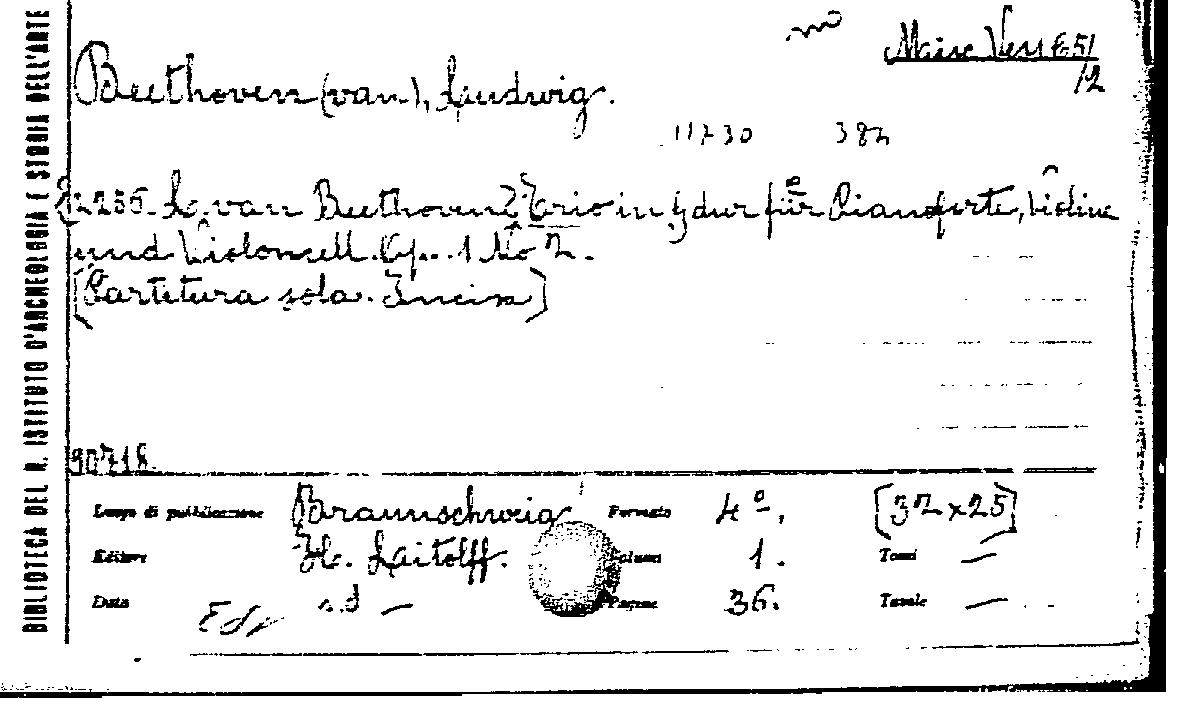 BIBLIOTECA DEL R. ISTITUTO D'ARCHEOLOGIA E STORIA DELL'ARTE
/2
Beethoven (van), Ludwig.
11730 387
L. van Beethoven's Trio in G dur für Pianoforte, Violine
und Violoncell. Op. 1 No 2.
[Partitura sola. Incisa]
90718
Luogo di pubblicazione Braunschweig Formato 4º. [32 x 25]
Editore H. Laitolff. Volumi 1. Tomi —
Data s.d — Pagine 36. Tavole —